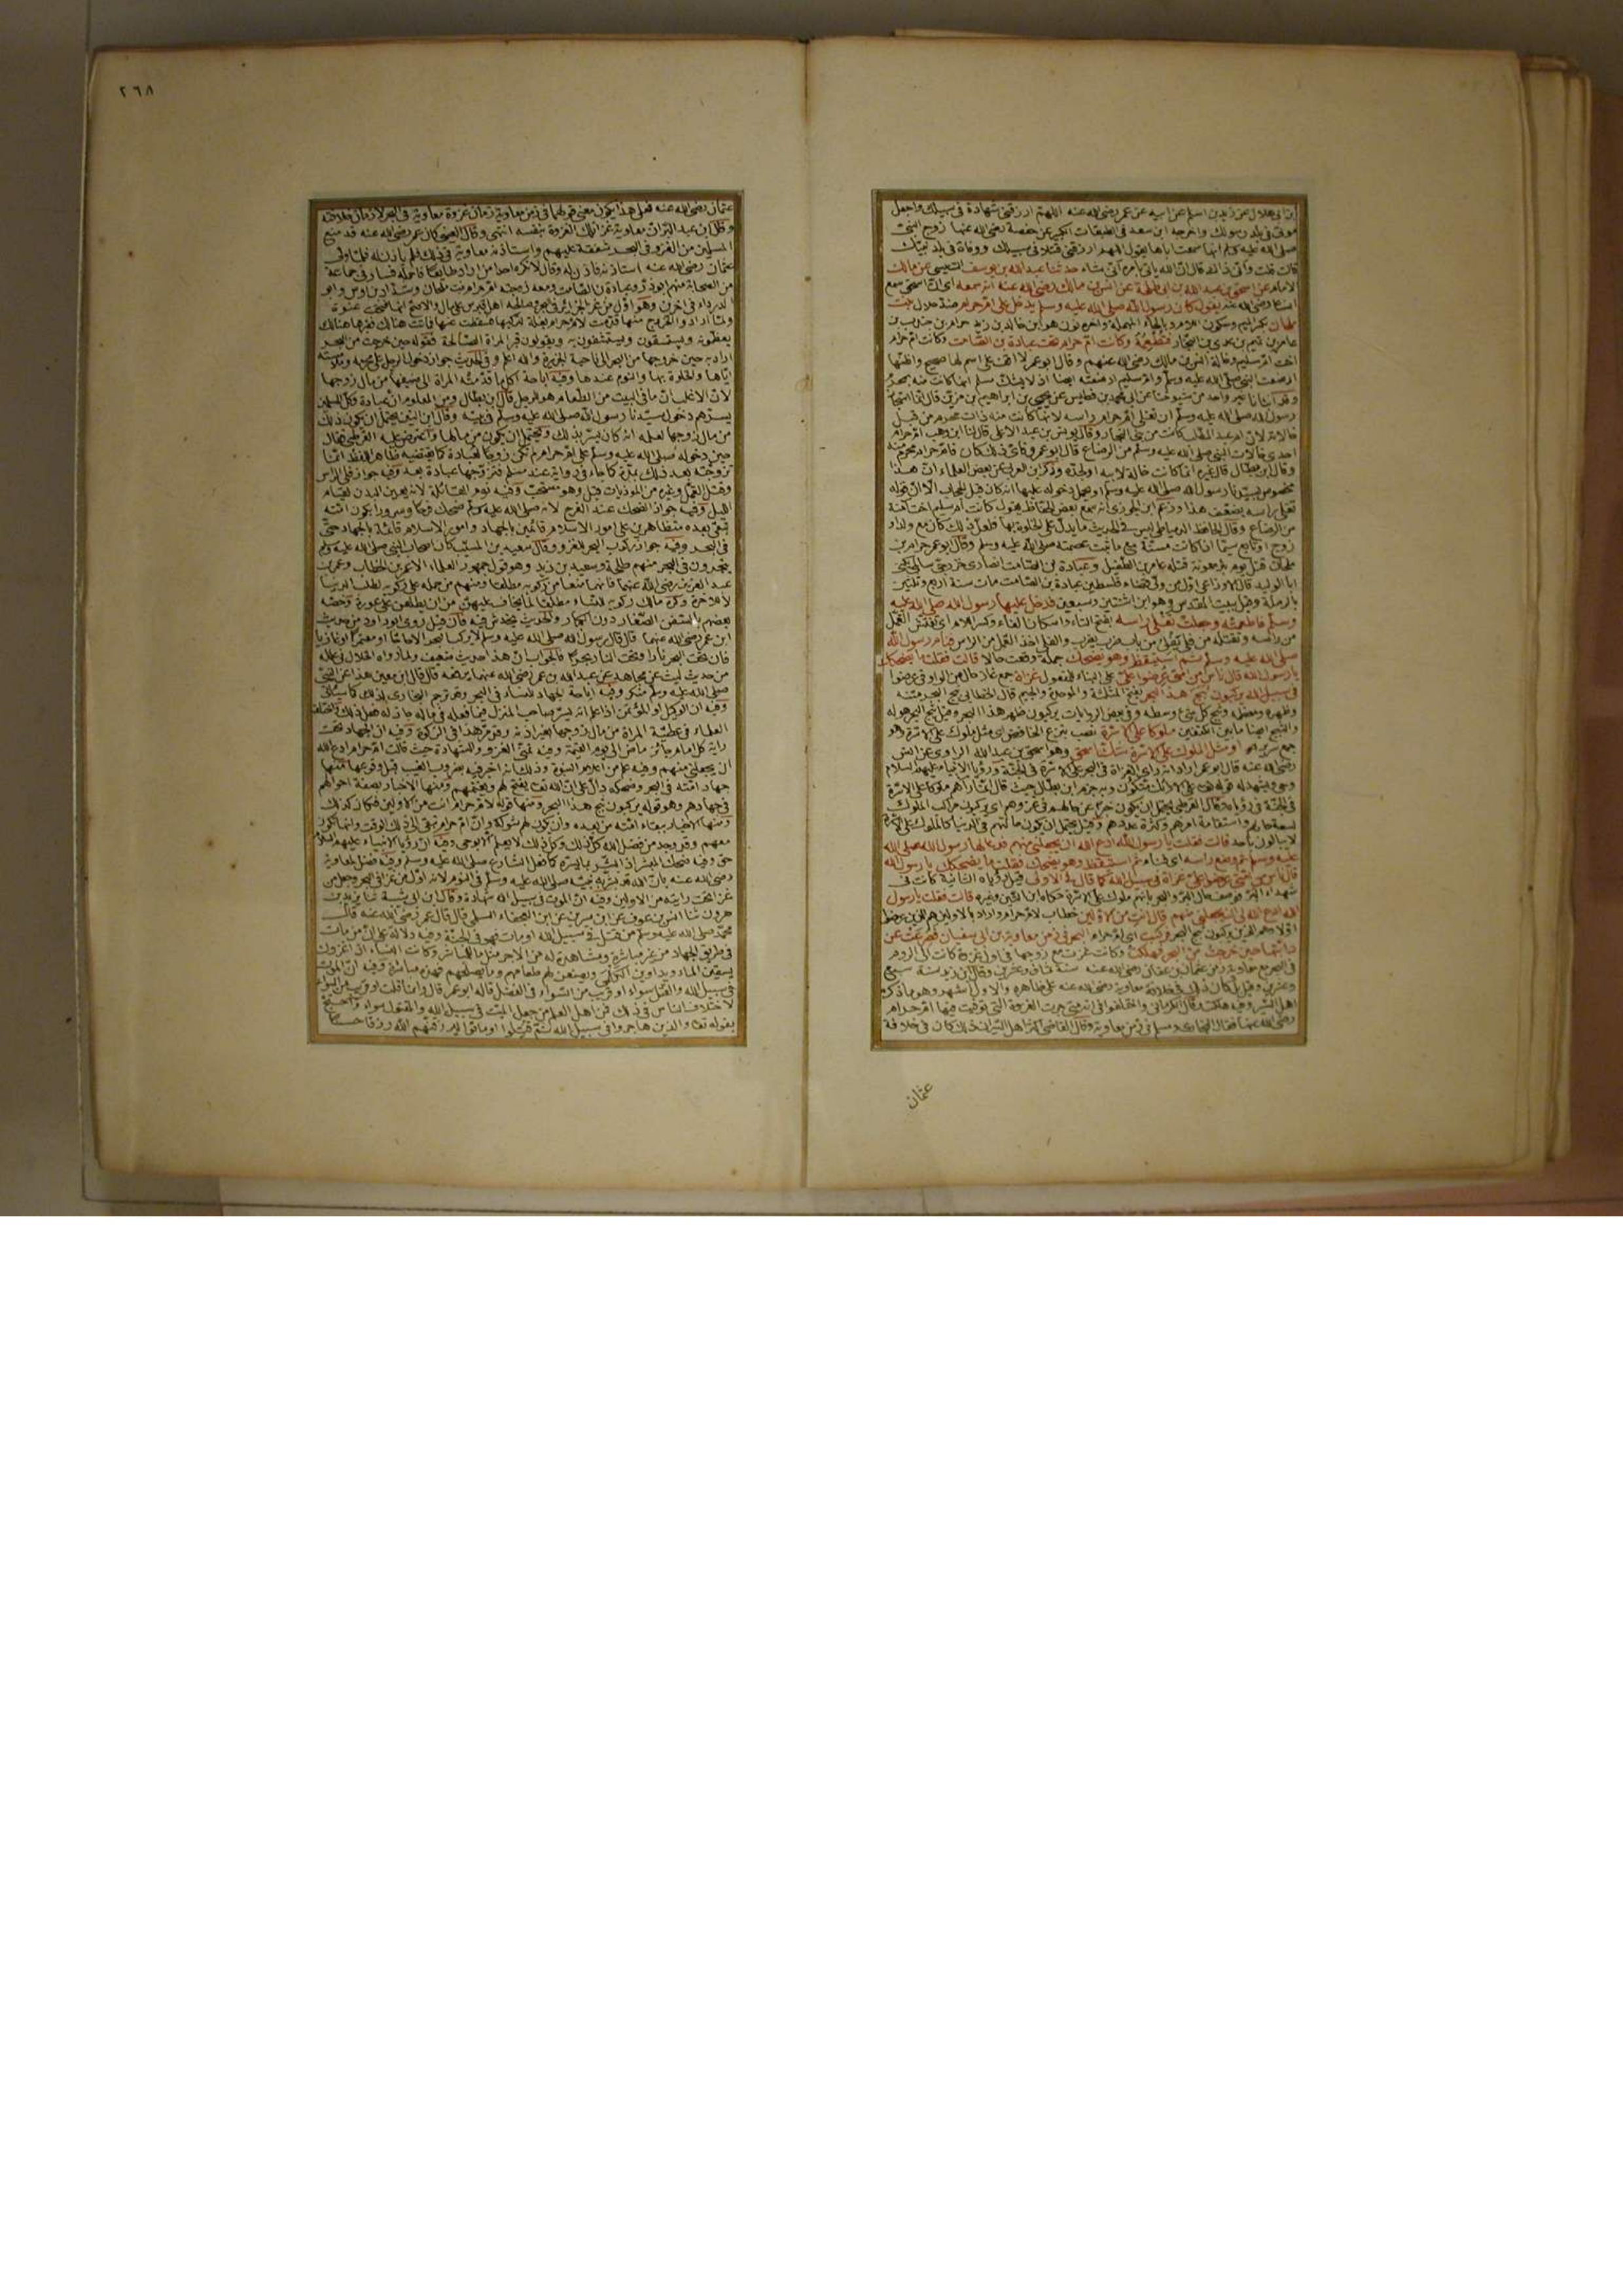 ابن ابي هلال عن زيد بن اسلم عن ابيه عن عمر رضي الله عنه اللهم ارزقني شهادة في سبيلك واجعل
موتي في بلد رسولك واخرجه ابن سعد في الطبقات الكبير عن حفصة رضي الله عنها زوج النبي
صلى الله عليه وسلم انها سمعت اباها يقول اللهم ارزقني قتلا في سبيلك ووفاة في بلد نبيك
قالت قلت وأنى ذلك قال ان الله يأتي بأمره أنى شاء حدثنا عبد الله بن يوسف التنيسي عن مالك
الامام عن اسحق بن عبد الله بن ابي طلحة عن انس بن مالك رضي الله عنه انه سمعه اي ان اسحق سمع
انسا رضي الله عنه يقول كان رسول الله صلى الله عليه وسلم يدخل على ام حرام بنت
ملحان بكسر الميم وسكون اللام وبالحاء المهملة وآخره نون هو ابن خالد بن زيد بن حرام بن جندب بن
عامر بن غنم بن عدي بن النجار فتطعمه وكانت ام حرام تحت عبادة بن الصامت وكانت ام حرام
اخت ام سليم وخالة انس بن مالك رضي الله عنهم وقال ابو عمر لا اقف على اسم لها صحيح واظنها
ارضعت النبي صلى الله عليه وسلم وام سليم ارضعته ايضا اذ لا يشك مسلم انها كانت منه بمحرم
رسول الله صلى الله عليه وسلم ان تفلي ام حرام راسه لانها كانت منه ذات محرم من قبل
خالاته لان ام عبد المطلب كانت من بني النجار وقال يونس بن عبد الاعلى قال لنا ابن وهب ام حرام
احدى خالات النبي صلى الله عليه وسلم من الرضاع قال ابو عمر فأي ذلك كان فام حرام محرم منه
وقال ابن بطال قال غيره انما كانت خالة لابيه او لجده وذكر ابن العربي عن بعض العلماء ان هذا
مخصوص بسيدنا رسول الله صلى الله عليه وسلم او يحمل دخوله عليها انه كان قبل الحجاب الا ان قوله
تفلي راسه يضعف هذا وزعم ابن الجوزي انه سمع بعض الحفاظ يقول كانت ام سليم اخت آمنة
من الرضاع وقال الحافظ الدمياطي ليس في الحديث ما يدل على الخلوة بها فلعل ذلك كان مع ولد او
زوج او تابع
ملحان قتل يوم بئر معونة قتله عامر بن الطفيل وعبادة بن الصامت انصاري خزرجي سالمي يكنى
ابا الوليد قال الاوزاعي اول من ولي قضاء فلسطين عبادة بن الصامت مات سنة اربع وثلثين
بالرملة وقيل ببيت المقدس وهو ابن اثنتين وسبعين فدخل عليها رسول الله صلى الله عليه
وسلم فاطعمته وجعلت تفلي راسه بفتح التاء واسكان الفاء وكسر اللام اي تفتش القمل
من راسه وتقتله من فلى يفلي من باب ضرب يضرب والفلي اخذ القمل من الراس فنام رسول الله
صلى الله عليه وسلم ثم استيقظ وهو يضحك جملة وقعت حالا قالت فقلت ما يضحكك
يا رسول الله قال ناس من امتي عرضوا علي على البناء للمفعول غزاة جمع غاز حال من الواو في عرضوا
في سبيل الله يركبون ثبج هذا البحر بفتح المثلثة والموحدة والجيم قال الخطابي ثبج البحر متنه
وظهره ومعظمه وثبج كل شيء وسطه وفي بعض الروايات يركبون ظهر هذا البحر وقيل ثبج البحر هوله
والثبج ايضا ما بين الكتفين ملوكا على الاسرة نصب بنزع الخافض اي مثل ملوك على الاسرة وهو
جمع سرير او مثل الملوك على الاسرة شك اسحق وهو اسحق بن عبد الله الراوي عن انس
رضي الله عنه قال ابو عمر اراد انه راى الغزاة في البحر على الاسرة في الجنة ورؤيا الانبياء عليهم السلام
وحي ويشهد له قوله تعالى على الارائك متكئون وبه جزم ابن بطال حيث قال انما رآهم ملوكا على الاسرة
في الجنة في رؤياه وقال القرطبي يحتمل ان يكون خبرا عن حالهم في غزوهم اي يركبون مراكب الملوك
لسعة حالهم واستقامة امرهم وكثرة عددهم وقيل يحتمل ان يكون حالتهم في الدنيا كالملوك على الاسرة
لا يبالون باحد قالت فقلت يا رسول الله ادع الله ان يجعلني منهم فدعا لها رسول الله صلى الله
عليه وسلم ثم وضع راسه اي فنام ثم استيقظ وهو يضحك فقلت ما يضحكك يا رسول الله
قال ناس من امتي عرضوا علي غزاة في سبيل الله كما قال في الاولى قيل رؤياه الثانية كانت في
شهداء البر فوصف حال البر والبحر بانهم ملوك على الاسرة حكاه ابن التين وغيره قالت فقلت يا رسول
الله ادع الله لي ان يجعلني منهم قال انت من الاولين خطاب لام حرام واراد بالاولين هم الذين عرضوا
اولا وهم الذين يركبون ثبج البحر فركبت اي ام حرام البحر في زمن معاوية بن ابي سفيان فصرعت عن
دابتها حين خرجت من البحر فهلكت وكانت غزت مع زوجها في اول غزوة كانت الى الروم
في البحر مع معاوية زمن عثمان بن عفان رضي الله عنه سنة ثمان وعشرين وقال ابن زيد سنة سبع
وعشرين وقيل بل كان ذلك في خلافة معاوية رضي الله عنه على ظاهره والاول اشهر وهو ما ذكره
اهل السير وفيه هلكت وقال الكرماني واختلفوا في انه متى جرت الغزوة التي توفيت فيها ام حرام
رضي الله عنها فقال البخاري ومسلم في زمن معاوية وقال القاضي اكثر اهل السير ان ذلك كان في خلافة
عثمان
٢٦٨
عثمان رضي الله عنه فعلى هذا يكون معنى قولهما في زمن معاوية زمان غزوة معاوية في البحر لا زمان خلافته
وقال ابن عبد البر ان معاوية غزا تلك الغزوة بنفسه انتهى وقال العيني كان عمر رضي الله عنه قد منع
المسلمين من الغزو في البحر شفقة عليهم واستأذنه معاوية في ذلك فلم يأذن له فلما ولي
عثمان رضي الله عنه استأذنه فاذن له وقال لا تكره احدا من اراد طايعا فاحمله فسار في جماعة
من الصحابة منهم ابو ذر وعبادة بن الصامت ومعه زوجته ام حرام بنت ملحان وشداد بن اوس وابو
الدرداء في آخرين وهو اول من غزا الجزائر في البحر وصالحه اهل قبرس على مال والاصح انها فتحت عنوة
ولما اراد والخروج منها قدمت لام حرام بغلة لتركبها فسقطت عنها فماتت هنالك فقبرها هنالك
يعظمونه ويستسقون به ويقولون قبر المراة الصالحة فقوله حين خرجت من البحر
اراد به حين خروجها من البحر الى ناحية الجزيرة والله اعلم وفي الحديث جواز دخول الرجل على محرمه وملامسته
اياها والخلوة بها والنوم عندها وفيه اباحة اكل ما قدمته المراة الى ضيفها من مال زوجها
لان الاغلب ان ما في البيت من الطعام هو للرجل قال ابن بطال ومن المعلوم ان عبادة وكل المسلمين
يسرهم دخول سيدنا رسول الله صلى الله عليه وسلم في بيته وقال ابن التين يحتمل ان يكون ذلك
من مال زوجها لعلمه انه كان يسر بذلك ويحتمل ان يكون من مالها واعترض عليه القرطبي فقال
حين دخوله صلى الله عليه وسلم على ام حرام لم تكن زوجا لعبادة كما يقتضيه ظاهر اللفظ انما
تزوجته بعد ذلك بمدة كما جاء في رواية عند مسلم فتزوجها عبادة بعد وفيه جواز فلي الراس
وقتل القمل وغيره من المؤذيات قيل وهو مستحب وفيه نوم القائلة لانه يعين البدن لقيام
الليل وفيه جواز الضحك عند الفرح لانه صلى الله عليه وسلم ضحك فرحا وسرورا بكون امته
تبقى بعده متظاهرين على امور الاسلام قائمين بالجهاد وامور الاسلام قائمة بالجهاد حتى
في البحر وفيه جواز ركوب البحر للغزو وقال سعيد بن المسيب كان اصحاب النبي صلى الله عليه وسلم
يتجرون في البحر منهم طلحة وسعيد بن زيد وهو قول جمهور العلماء الا عمر بن الخطاب وعمر بن
عبد العزيز رضي الله عنهما فانهما منعا من ركوبه مطلقا ومنهم من حمله على ركوبه لطلب الدنيا
لا للآخرة وكره مالك ركوبه للنساء مطلقا لما يخاف عليهن من ان يطلعن على عورة وخصه
بعضهم بالسفن الصغار دون الكبار والحديث يخدش فيه فان قيل روى ابو داود من حديث
ابن عمر رضي الله عنهما قال قال رسول الله صلى الله عليه وسلم لا يركب البحر الا حاجا او معتمرا او غازيا
فان تحت البحر نارا وتحت النار بحرا فالجواب ان هذا حديث ضعيف ولما رواه الخلال في علله
من حديث ليث عن مجاهد عن عبد الله بن عمر رضي الله عنهما يرفعه قال قال ابن معين هذا عن النبي
صلى الله عليه وسلم منكر وفيه اباحة الجهاد للنساء في البحر وقد ترجم البخاري لذلك كما سيأتي
وفيه ان الوكيل او المؤتمن اذا علم انه يسر صاحب المنزل فيما يفعله في ماله جاز له فعل ذلك واختلف
العلماء في عطية المراة من مال زوجها بغير اذنه وقد مر هذا في الزكوة وفيه ان الجهاد تحت
راية كل امام جائز ماض الى يوم القيمة وفيه تمني الغزو والشهادة حيث قالت ام حرام ادع الله
ان يجعلني منهم وفيه علم من اعلام النبوة وذلك انه اخبر فيه بضروب الغيب قبل وقوعها منها
جهاد امته في البحر وضحكه دال على ان الله تعالى يفتح لهم ويغنمهم ومنها الاخبار بصفة احوالهم
في جهادهم وهو قوله يركبون ثبج هذا البحر ومنها قوله لام حرام انت من الاولين فكان كذلك
ومنها الاخبار ببقاء امته من بعده وان يكون لهم شوكة وان ام حرام تبقى الى ذلك الوقت وانها تكون
معهم وقد وجد من فضل الله كل ذلك وكل ذلك لا يعلم الا بوحي وفيه ان رؤيا الانبياء عليهم السلام
حق وفيه ضحك المبشر اذا بشر بما يسره كما فعل الشارع صلى الله عليه وسلم وفيه فضل لمعاوية
رضي الله عنه بان الله قد بشر به نبيه صلى الله عليه وسلم في النوم لانه اول من غزا في البحر وجعل من
غزا تحت رايته من الاولين وفيه ان الموت في سبيل الله شهادة وقال ابن ابي شيبة ثنا يزيد بن
هرون ثنا انس بن عوف عن ابن سيرين عن ابن العجفاء السلمي قال قال عمر رضي الله عنه قال
محمد صلى الله عليه وسلم من قتل في سبيل الله او مات فهو في الجنة وفيه دلالة على ان من مات
في طريق الجهاد من غير مباشرة ومشاهدة له من الاجر مثل ما للمباشر وكانت النساء اذا غزون
يسقين الماء ويداوين الكلمى ويصنعن لهم طعامهم وما يصلحهم فهذه مباشرة وفيه ان الموت
في سبيل الله والقتل سواء او قريب من السواء في الفضل قاله ابو عمر قال وانما قلت او قريب من السواء
لاختلاف الناس في ذلك فمن اهل العلم من جعل الميت في سبيل الله والمقتول سواء واحتج
بقوله تعالى والذين هاجروا في سبيل الله ثم قتلوا او ماتوا ليرزقنهم الله رزقا حسنا